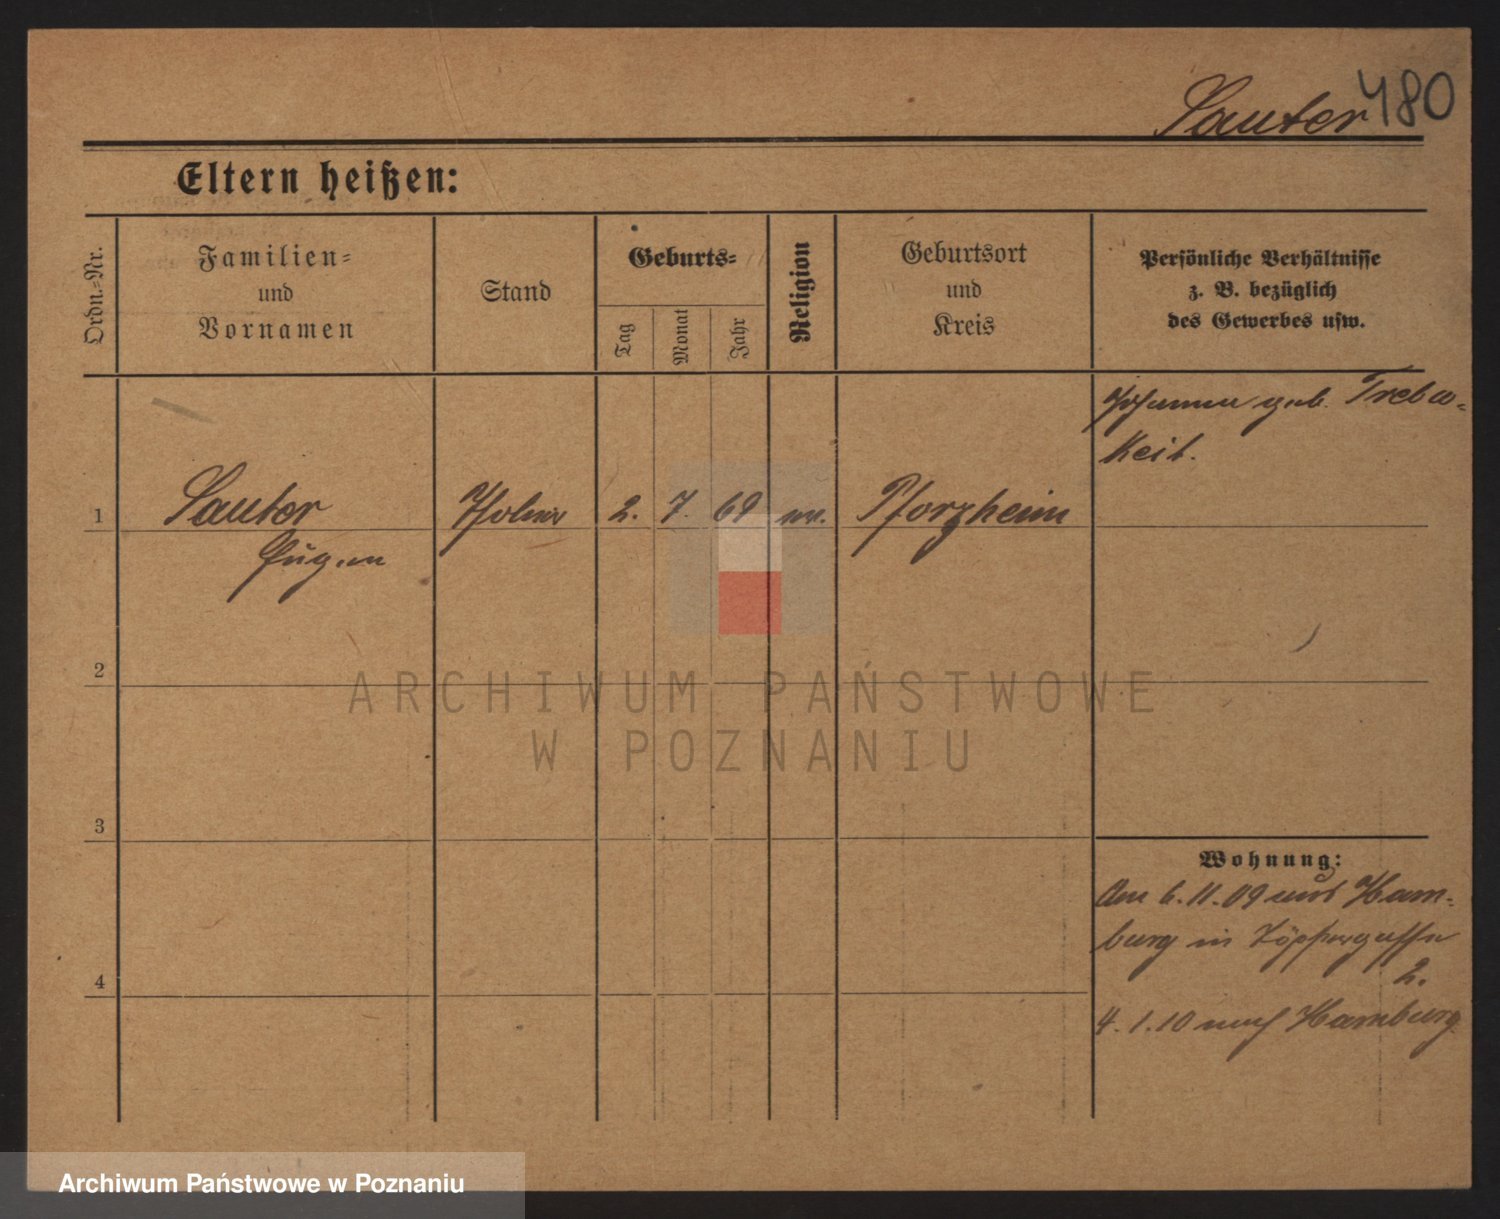 Sauter 480
Eltern heißen:
Ordn.=Nr.
Familien=
und
Vornamen
Stand
Geburts=
Tag
Monat
Jahr
Religion
Geburtsort
und
Kreis
Persönliche Verhältnisse
z. B. bezüglich
des Gewerbes usw.
geb. Treba-
keit.
1 Sauter 2. 7. 69 Pforzheim
Eugen
2
3
4
Wohnung:
Am 6.11.09 aus Ham-
burg in Töpfergasse
2.
4.1.10 nach Hamburg.
ARCHIWUM PAŃSTWOWE
W POZNANIU
Archiwum Państwowe w Poznaniu